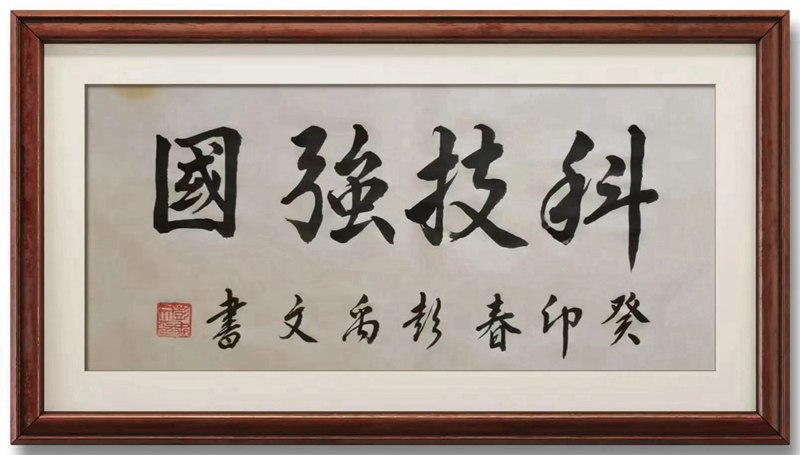 科技強國
癸卯春彭禹文書